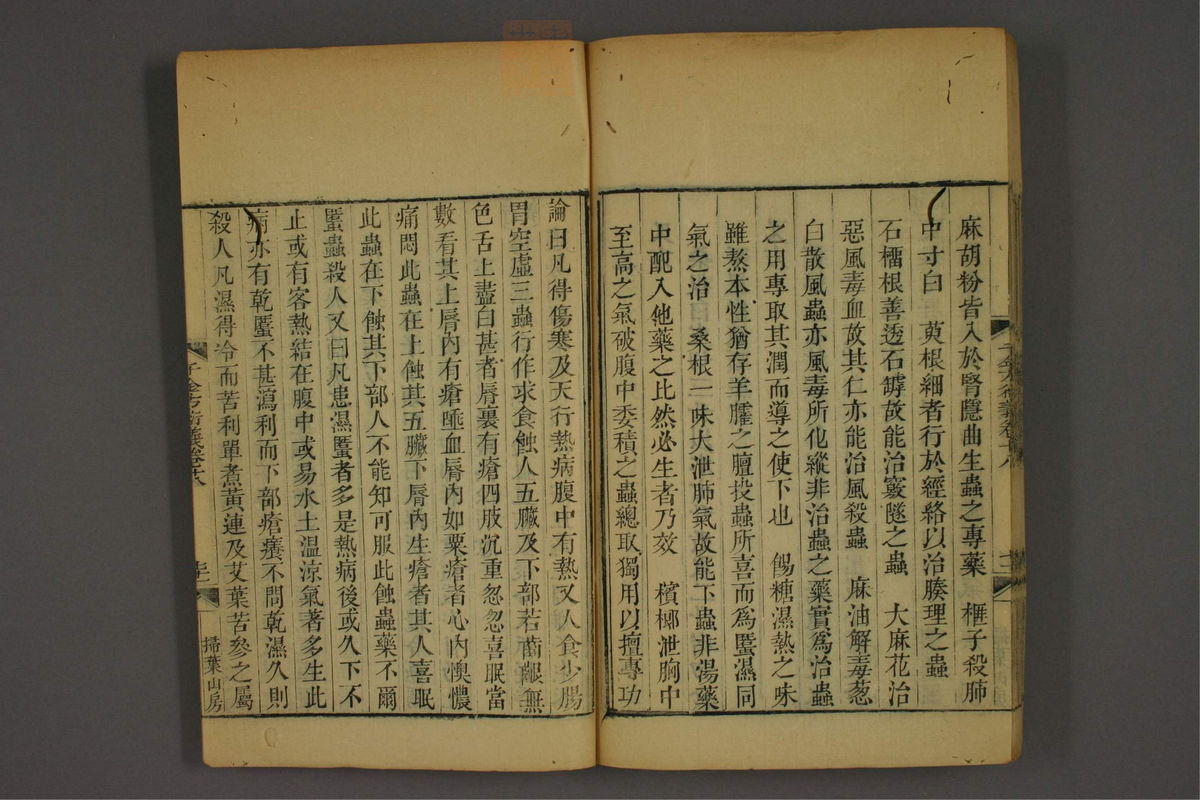 麻胡粉皆入於腎隱曲生蟲之專藥　榧子殺肺
中寸白　萸根細者行於經絡以治腠理之蟲
石橊根善透石罅故能治竅隧之蟲　大麻花治
惡風毒血故其仁亦能治風殺蟲　麻油解毒葱
白散風蟲亦風毒所化縱非治蟲之藥實爲治蟲
之用專取其潤而導之使下也　餳糖濕熱之味
雖熬本性猶存羊臛之膻投蟲所喜而爲䘌濕同
氣之治　桑根一味大泄肺氣故能下蟲非湯藥
中配入他藥之比然必生者乃效　檳榔泄胸中
至高之氣破腹中委積之蟲總取獨用以擅專功
論曰凡得傷寒及天行熱病腹中有熱又人食少腸
胃空虛三蟲行作求食蝕人五臟及下部若齒齦無
色舌上盡白甚者脣裏有瘡四肢沉重忽忽喜眠當
數看其上脣內有瘡唾血脣內如粟瘡者心內懊憹
痛悶此蟲在上蝕其五臟下脣內生瘡者其人喜眠
此蟲在下蝕其下部人不能知可服此蝕蟲藥不爾
䘌蟲殺人又曰凡患濕䘌者多是熱病後或久下不
止或有客熱結在腹中或易水土温涼氣著多生此
病亦有乾䘌不甚瀉利而下部瘡癢不問乾濕久則
殺人凡濕得冷而苦利單煮黃連及艾葉苦參之屬
千金方衍義卷十八
掃葉山房